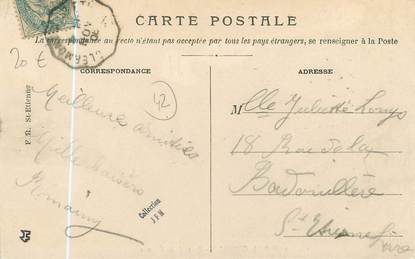 CARTE POSTALE
La correspondance au recto n'étant pas acceptée par tous les pays étrangers, se renseigner à la Poste
CORRESPONDANCE
ADRESSE
20 €
42
Meilleures amitiés
Mlle Juliette
18 Rue de la
Badouillère
St Etienne
Loire
F. R. St-Etienne
Collection
JFM